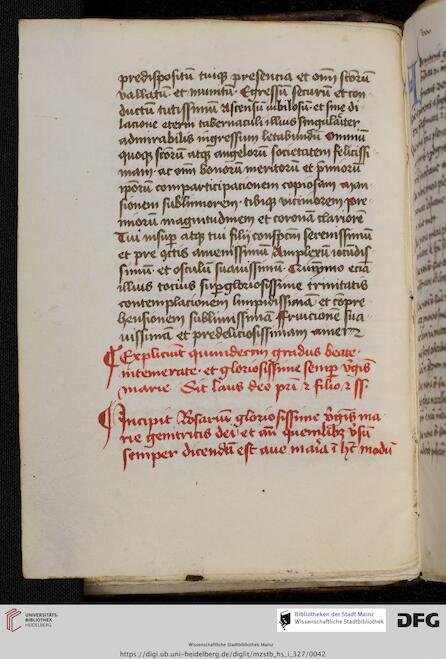 predispositū tuiq; presencia et oīm scōrū
vallatū et munitū Egressū securū et con
ductū tutissimū Ascensū iubilosū et sine di
lacione eterni tabernaculi illius singularit̄er
admirabilis ingressum letabundū Omniū
quoq; scōrū atq; angelorū societatem felicissi
mam ac oīm bonorū meritorū et p̄miorū
ip̄orū comparticipacionem copiosam Man
sionem sublimiorem tibiq; viciniorem pre
miorū magnitudinem et coronā clariorē
Tui insuper atq; tui filij conspc̄m serenissimū
et pre cc̄tis amenissimū Amplexū iocūdis
simū et osculū suauissimū Quīymo eciā
illius tocius suꝑgloriosissime trinitatis
contemplacionem limpidissimā et cōpre
hensionem sublimissimā Fruicione sua
uissimā et predeliciosissimam Amen
Expliciūt quindecim gradus beate
intemerate et gloriosissime semꝑ v̄gīs
marie Sit laus deo pr̄i ⁊ filio ⁊ ss
Incipit Rosariū gloriosissime v̄gīs ma
rie genitricis dei et añ quemlibꝫ v̄sū
semper dicendū est aue maria ī hc̄ modū
UNIVERSITÄTS-
BIBLIOTHEK
HEIDELBERG
Bibliotheken der Stadt Mainz
Wissenschaftliche Stadtbibliothek
DFG
Wissenschaftliche Stadtbibliothek Mainz
https://digi.ub.uni-heidelberg.de/diglit/mzstb_hs_i_327/0042